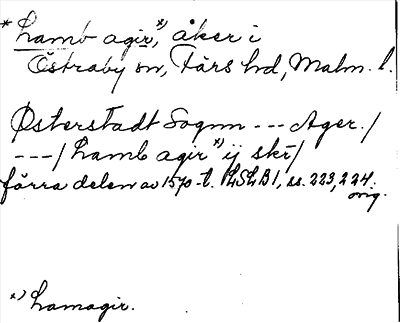 * hamb agir, *) åker i
Östraby sn, Färs hd, Malm. l.
Østerstadt Sognn --- Ager./
---/ hamb agir *) ij skr/
förra delen av 1570-t. LSLB 1, ss. 223, 224.
orig.
*) hamagir.